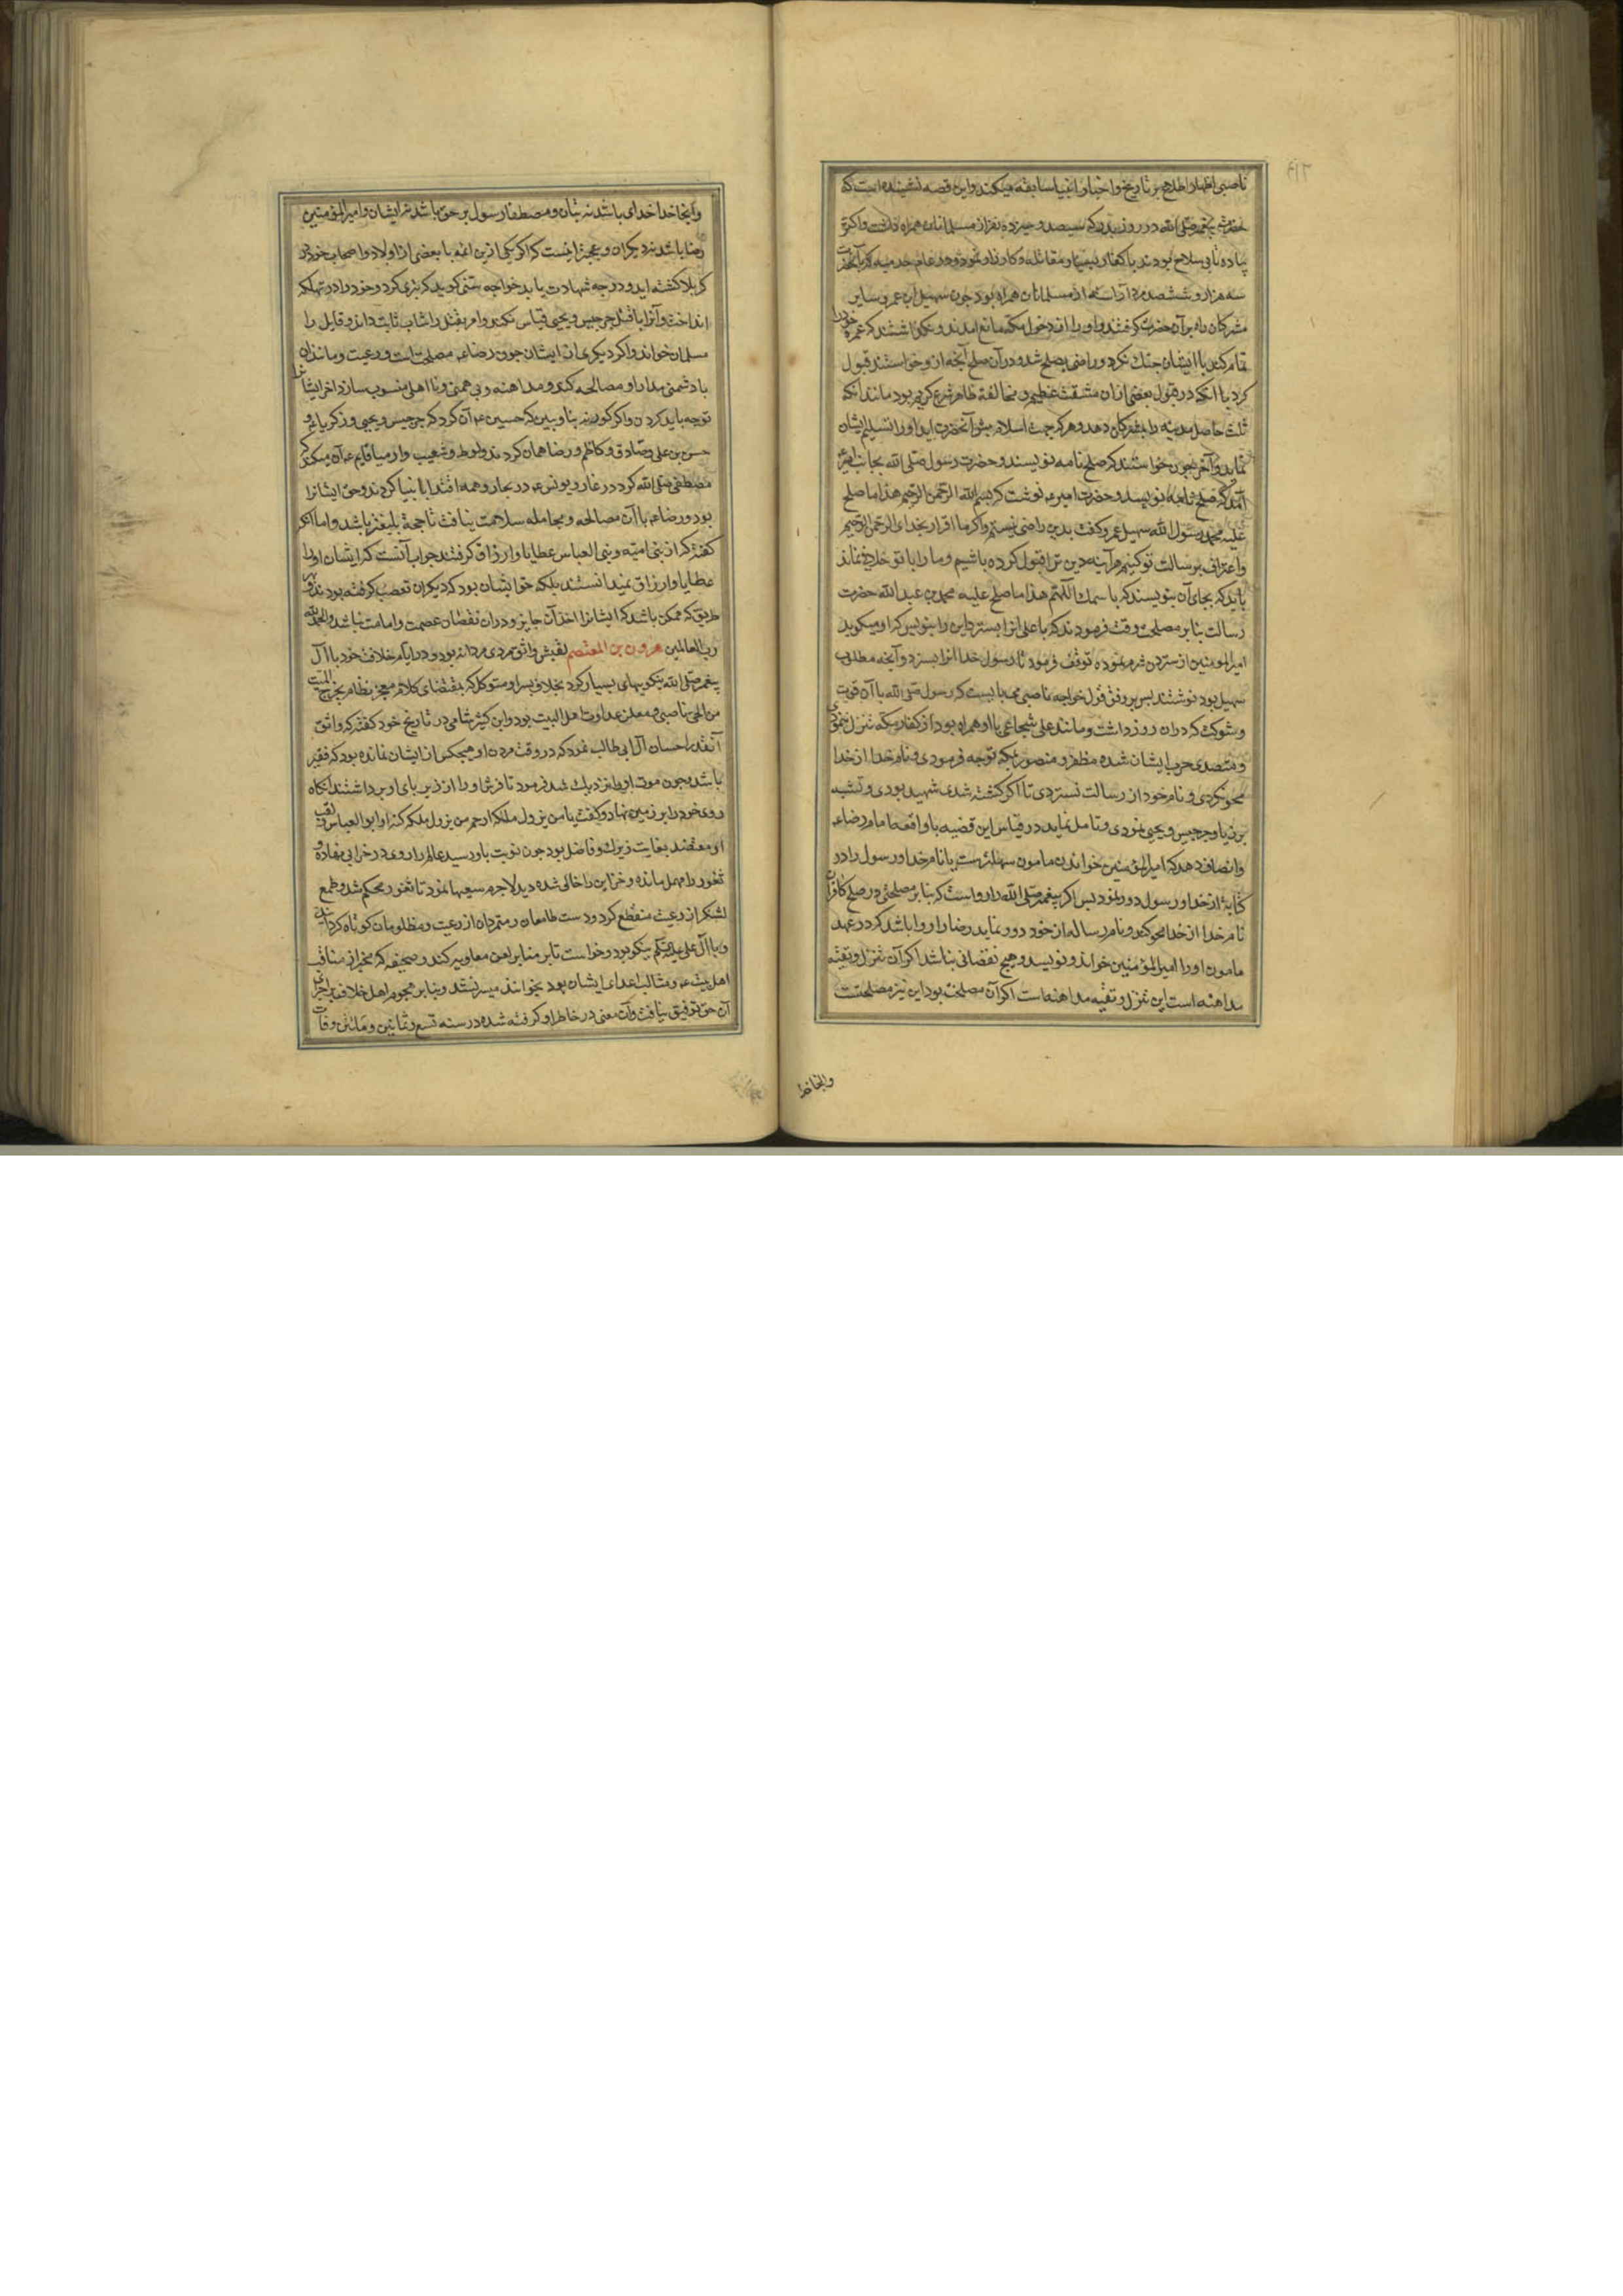 ناصبی اظهار اطلاع بر تاریخ و اخبار انبیا سابقه میکند و این قصه نشنیده است که
حضرت پیغمبر صلی الله در روز بدر که سیصد و سیزده نفر از مسلمانان همراه داشت و اکثر
پیاده و بی سلاح بودند با کفار بسیار مقاتله و کارزار نمود و در عام حدیبیه که با آنحضرت
سه هزار و ششصد مرد آراسته از مسلمانان همراه بود چون سهیل بن عمرو و سایر
مشرکان راه بر آن حضرت گرفتند و او را از دخول مکه مانع آمدند و نگذاشتند که عمره خود را
تمام کند با ایشان جنک نکرد و راضی بصلح شد و در آن صلح آنچه از وی خواستند قبول
کرد با آنکه در قبول بعضی از آن مشقت عظیم و مخالفة ظاهر شرع کریم بود مانند آنکه
ثلث حاصل مدینه را بمشرکان دهد و هر که جهت اسلام پیش آنحضرت آید او را تسلیم ایشان
نماید و آخر چون خواستند که صلح نامه نویسند و حضرت رسول صلی الله بجانب امیر
آمد که صلح نامه نویسد و حضرت امیر ع نوشت که بسم الله الرحمن الرحیم هذا ما صلح
علیه محمد رسول الله سهیل عمرو کفت بدین راضی نیستم و اکر ما اقرار بخدای الرحمن الرحیم
و اعتراف برسالت تو کنیم هر آینه دین ترا قبول کرده باشیم و ما را با تو خلافی نماند
باید که بجای آن بنویسند که باسمک اللهم هذا ما صلح علیه محمد بن عبد الله حضرت
رسالت بنابر مصلحت وقت فرمودند که یا علی انرا بستر و این را بنویس که او میکوید
امیر المومنین از ستردن شرم نموده توقف فرمود تا رسول خدا انرا بسترد و آنچه مطلب
سهیل بود نوشتند پس بر وفق قول خواجه ناصبی می بایست که رسول صلی الله با آن قوت
و شوکت که در ان روز داشت و مانند علی شجاعی با او همراه بود از کفار مکه تنزل ننمودی
و متصدی حرب ایشان شده مظفر و منصور بمکه توجه فرمودی و نام خدا از خدا
محو نکردی و نام خود از رسالت نستردی تا اکر کشته شدی شهید بودی و تشبه
بزکریا و جرجیس و یحیی نمودی و تامل نماید در قیاس این قضیه با واقعه امام رضا ع
و انصاف دهد که امیر المؤمنین خواندن مامون سهلتر هست یا نام خدا و رسول را در
کتابة از خدا و رسول دور نمود پس اکر پیغمبر صلی الله را رواست که بنابر مصلحتی در صلح کافران
نام خدا از خدا محو کند و نام رساله از خود دور نماید رضا را روا باشد که در عهد
مامون او را امیر المؤمنین خواند و نویسد و هیچ نقصانی نباشد اکر آن تنزل و تقیه
مداهنه است این تنزل و تقیه مداهنه است اکر آن مصلحت بود این نیز مصلحتست
و انجا خدا خدای باشد نه بتان و مصطفا رسول بر حق باشد نه ایشان و امیر المؤمنین
رضا باشد نه دیکران و عجبتر اینست که اکر یکی ازین ائمه با بعضی از اولاد و اصحاب خود در
کربلا کشته آید و درجه شهادت یابد خواجه سنی کوید که خود را در تهلکه
انداخت و آنرا با قتل جرجیس و یحیی قیاس نکند و قابل را
مسلمان خواند و اکر دیکری از ایشان چون رضا ع مصلحت رعیت و مانند آن
با دشمنی مدارا و مصالحه کند و مداهنه و بی همتی و نا اهلی منسوب سازد آخر ایشانرا
توجه باید کردن و اکر کور نه بنا و ببین که حسین ع آن کرد که جرجیس و یحیی و زکریا ع و
حسن بن علی و صادق و کاظم و رضا همان کردند و لوط و شعیب و ارمیا قایم ع آن میکند که
مصطفی صلی الله کرد در غار و یونس ع در بحار و همه اقتدا بانبیا کردند و حق ایشانرا
بود و رضا ع با آن مصالحه و مجامله سلامت نیافت تا حجة بلیغتر باشد و اما آنکه
کفته که از بنی امیه و بنی العباس عطایا و ارزاق کرفتند جواب آنست که ایشان او را
عطایا و ارزاق نمیدانستند بلکه حق ایشان بود که دیکران تعصب کرفته بودند و بهر
طریق که ممکن باشد که ایشانرا اخذ آن جایز و در ان نقصان عصمت و امامت نباشد و الحمد لله
رب العالمین هرون بن المعتصم لقبش واثق مردی مردانه بود و در ایام خلافت خود با آل
پیغمبر صلی الله نیکوییهای بسیار کرد بخلاف پسر او متوکل که بمقتضای کلام معجز نظام یخرج المیت
من الحی ناصبی و معلن عداوت اهل البیت بود و ابن کثیر شامی در تاریخ خود کفته که واثق
آنقدر احسان آل ابی طالب نمود که در وقت مردن او هیچکس از ایشان نمانده بود که فقیر
باشد و چون موت او را نزدیک شد فرمود تا فرش او را از زیر پای او برداشتند آنکاه
روی خود را بر زمین نهاد و کفت یا من یزول ملکه ارحم من یزول ملکه کنه او ابو العباس و لقب
او معتضد بغایت زیرک و فاضل بود چون نوبت باو رسید عالم را روی در خرابی نهاده و
ثغور را مهمل مانده و خزاین را خالی شده دید لاجرم سعیها نمود تا ثغور محکم شد و طمع
لشکر از رعیت منقطع کرد و دست طامعان و متمردان از رعیت و مظلومان کوتاه کردانید
و با آل علی نیکو بود و خواست تا بر منابر لعن معاویه کند و صحیفه که مخبر از مناقب
اهل بیت ع و مثالب اعدای ایشان بود بخوانند میسر نشد و بنابر هجوم اهل خلاف بر اجرای
آن حق توفیق نیافت و آن معنی در خاطر او کرفته شده در سنه تسع و ثمانین و مأتین وفات